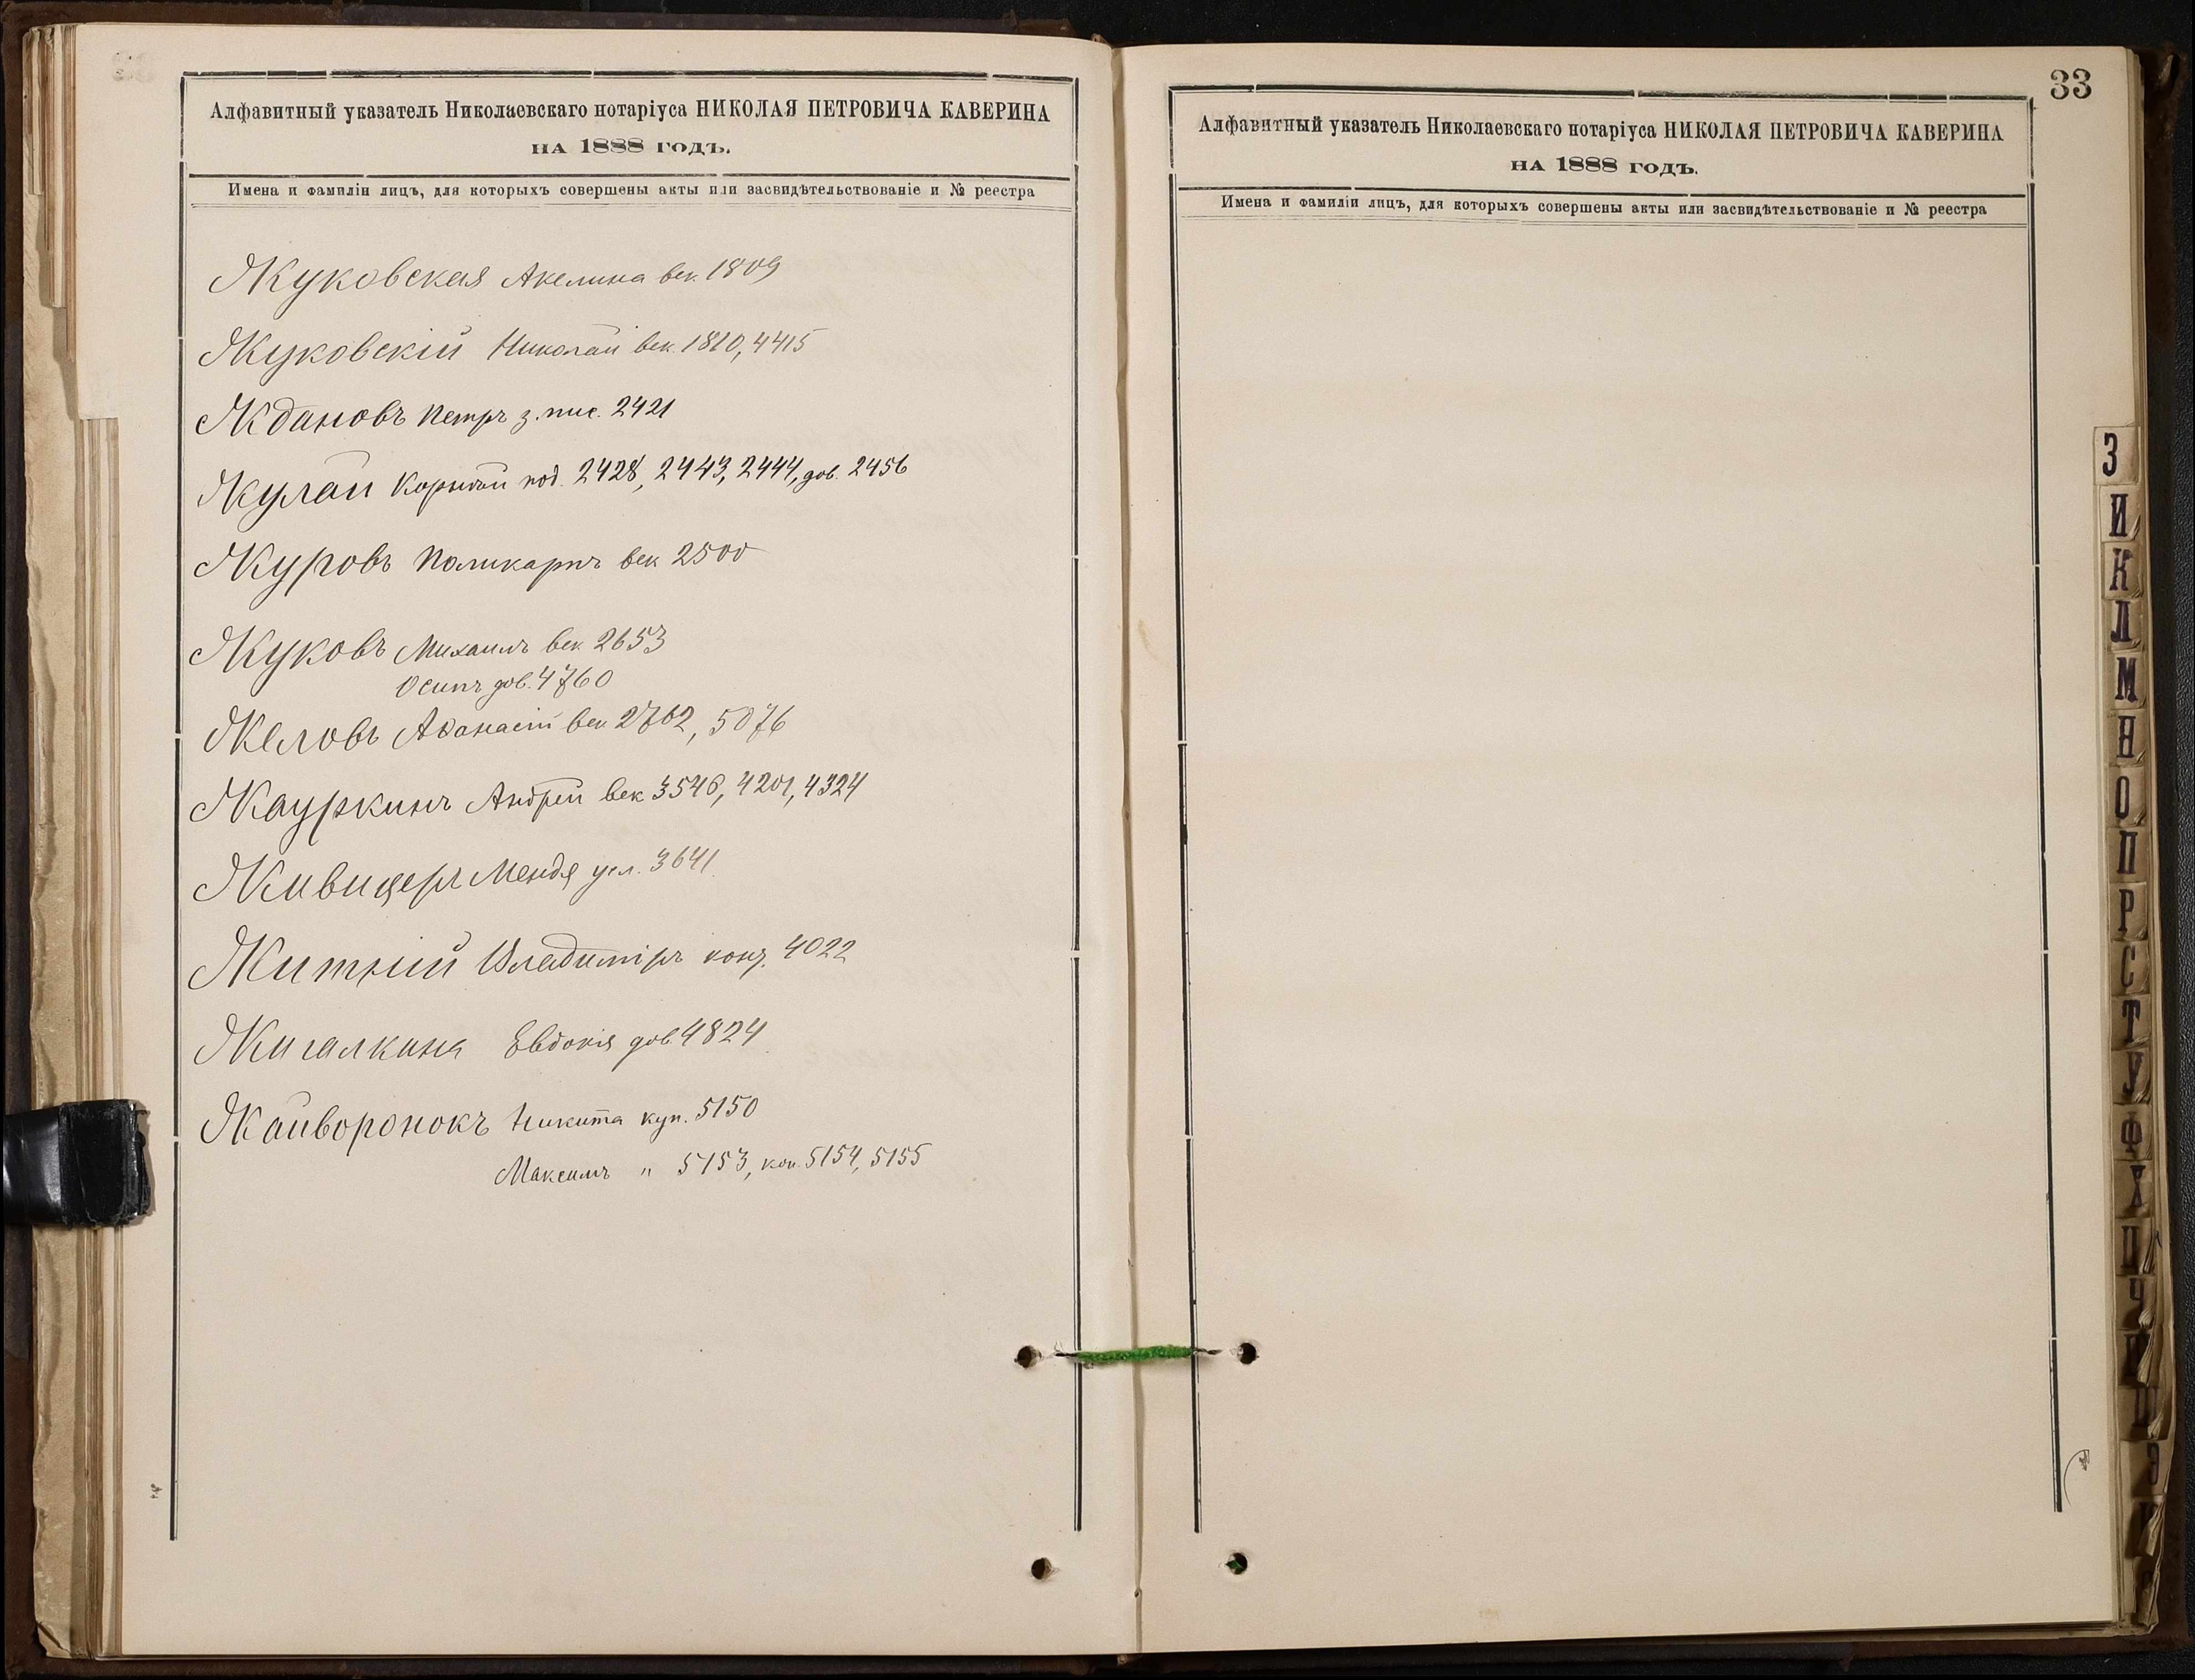 Алфавитный указатель Николаевскаго нотаріуса НИКОЛАЯ ПЕТРОВИЧА КАВЕРИНА
НА 1888 ГОДЪ.
Имена и фамиліи лицъ, для которыхъ совершены акты или засвидѣтельствованіе и № реестра
Жуковская Акелина век. 1809
Жуковскій Николай век. 1810, 4415
Ждановъ Петръ з. пис. 2421
Жулай Корнѣй под. 2428, 2443, 2444, дов. 2456
Журовъ Поликарпъ век 2500
Жуковъ Михаилъ век 2653
Осипъ дов. 4760
Желовъ Аѳанасій век 2762, 5076
Жауркинъ Андрей век 3546, 4201, 4324
Живицеръ Мендя усл. 3641
Житній Владиміръ 4022
Жигалкина Евдокія дов. 4824
Жайворонокъ Никита куп. 5150
Максимъ " 5153, коп. 5154, 5155
33
Алфавитный указатель Николаевскаго нотаріуса НИКОЛАЯ ПЕТРОВИЧА КАВЕРИНА
НА 1888 ГОДЪ.
Имена и фамиліи лицъ, для которыхъ совершены акты или засвидѣтельствованіе и № реестра
З
И
К
Л
М
Н
О
П
Р
С
Т
У
Ф
Х
Ц
Ч